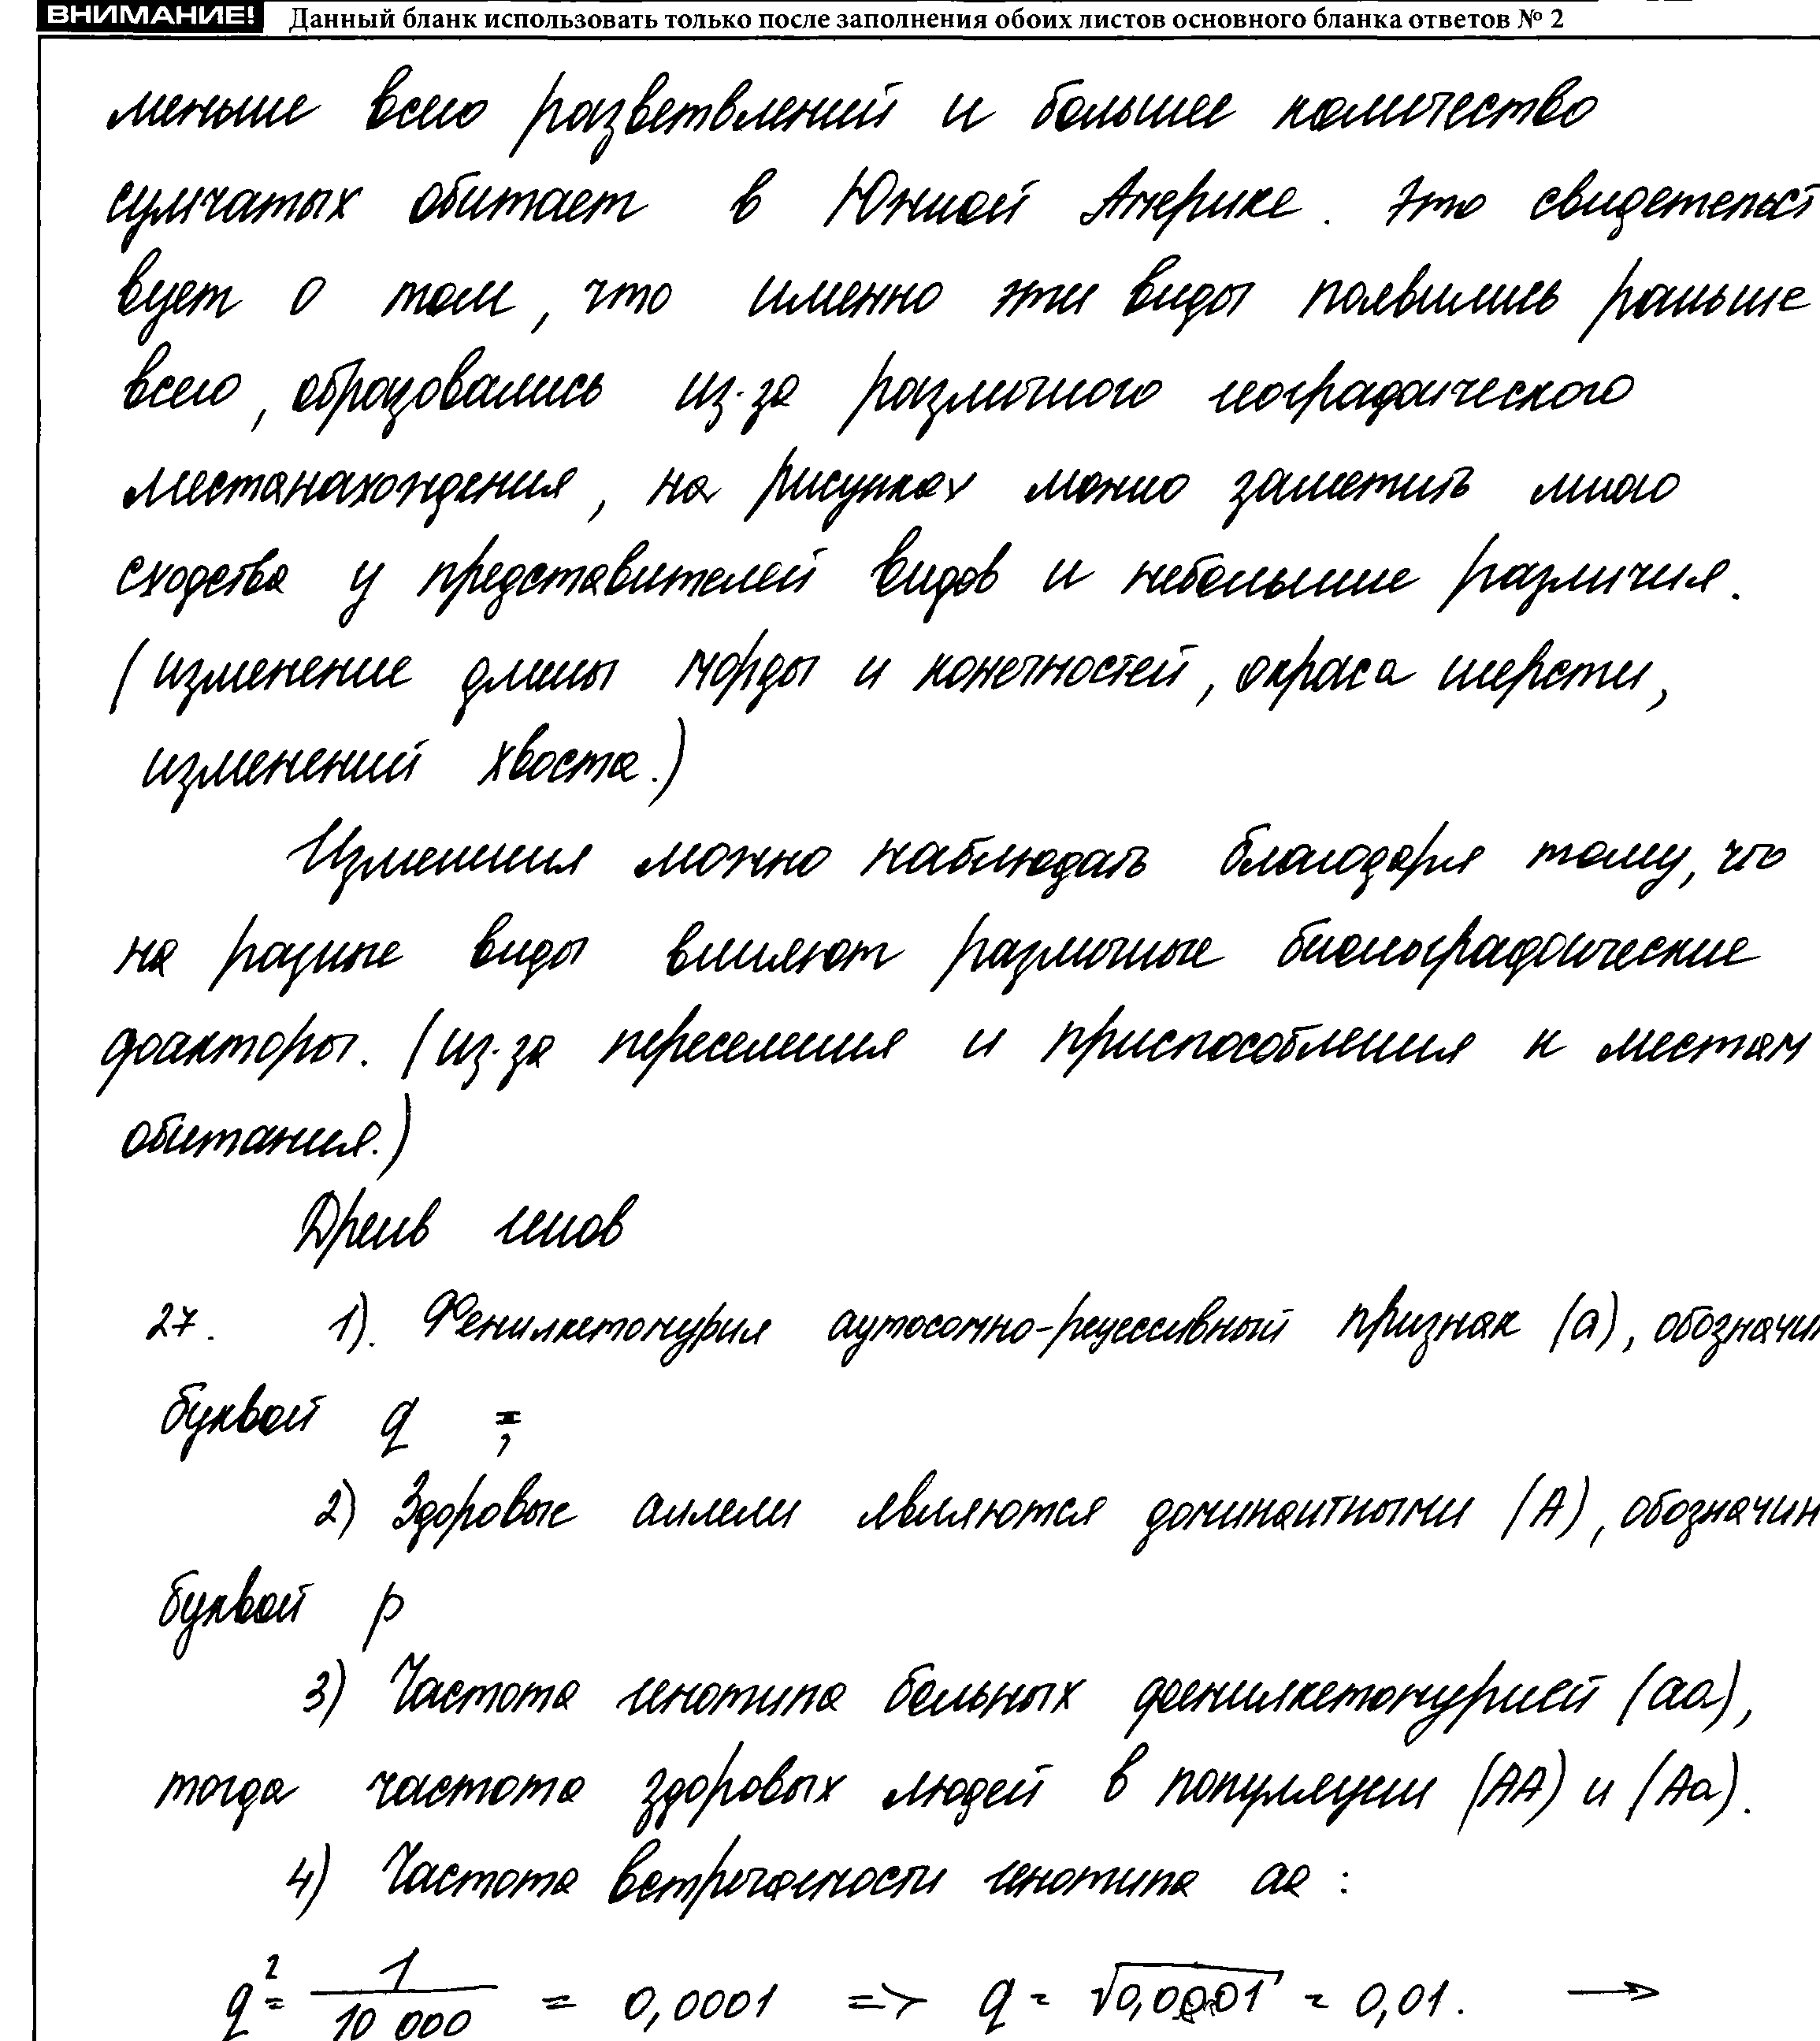 ВНИМАНИЕ! Данный бланк использовать только после заполнения обоих листов основного бланка ответов № 2
меньше всего разветвлений и большее количество
сумчатых обитает в Южной Америке. Это свидетельст
вует о том, что именно эти виды появились раньше
всего, образовались из-за различного географического
местанахождения, на рисунках можно заметить много
сходства у представителей видов и небольшие различия.
(изменение длины морды и конечностей, окраса шерсти,
изменений хвоста.)
Изменения можно наблюдать благодаря тому, что
на разные виды влияют различные биогеографические
факторы. (из-за переселения и приспособления к местам
обитания.)
Дрейв генов
27. 1). Фенилкетонурия аутосомно-рецессивный признак (a), обозначим
буквой q ;
2) Здоровые аллели являются доминантными (A), обозначим
буквой p
3) Частота генотипа больных фенилкетонурией (aa),
тогда частота здоровых людей в популяции (AA) и (Aa).
4) Частота встречаемости генотипа aa :
q² = 1/10 000 = 0,0001 => q = √0,0001 = 0,01. →